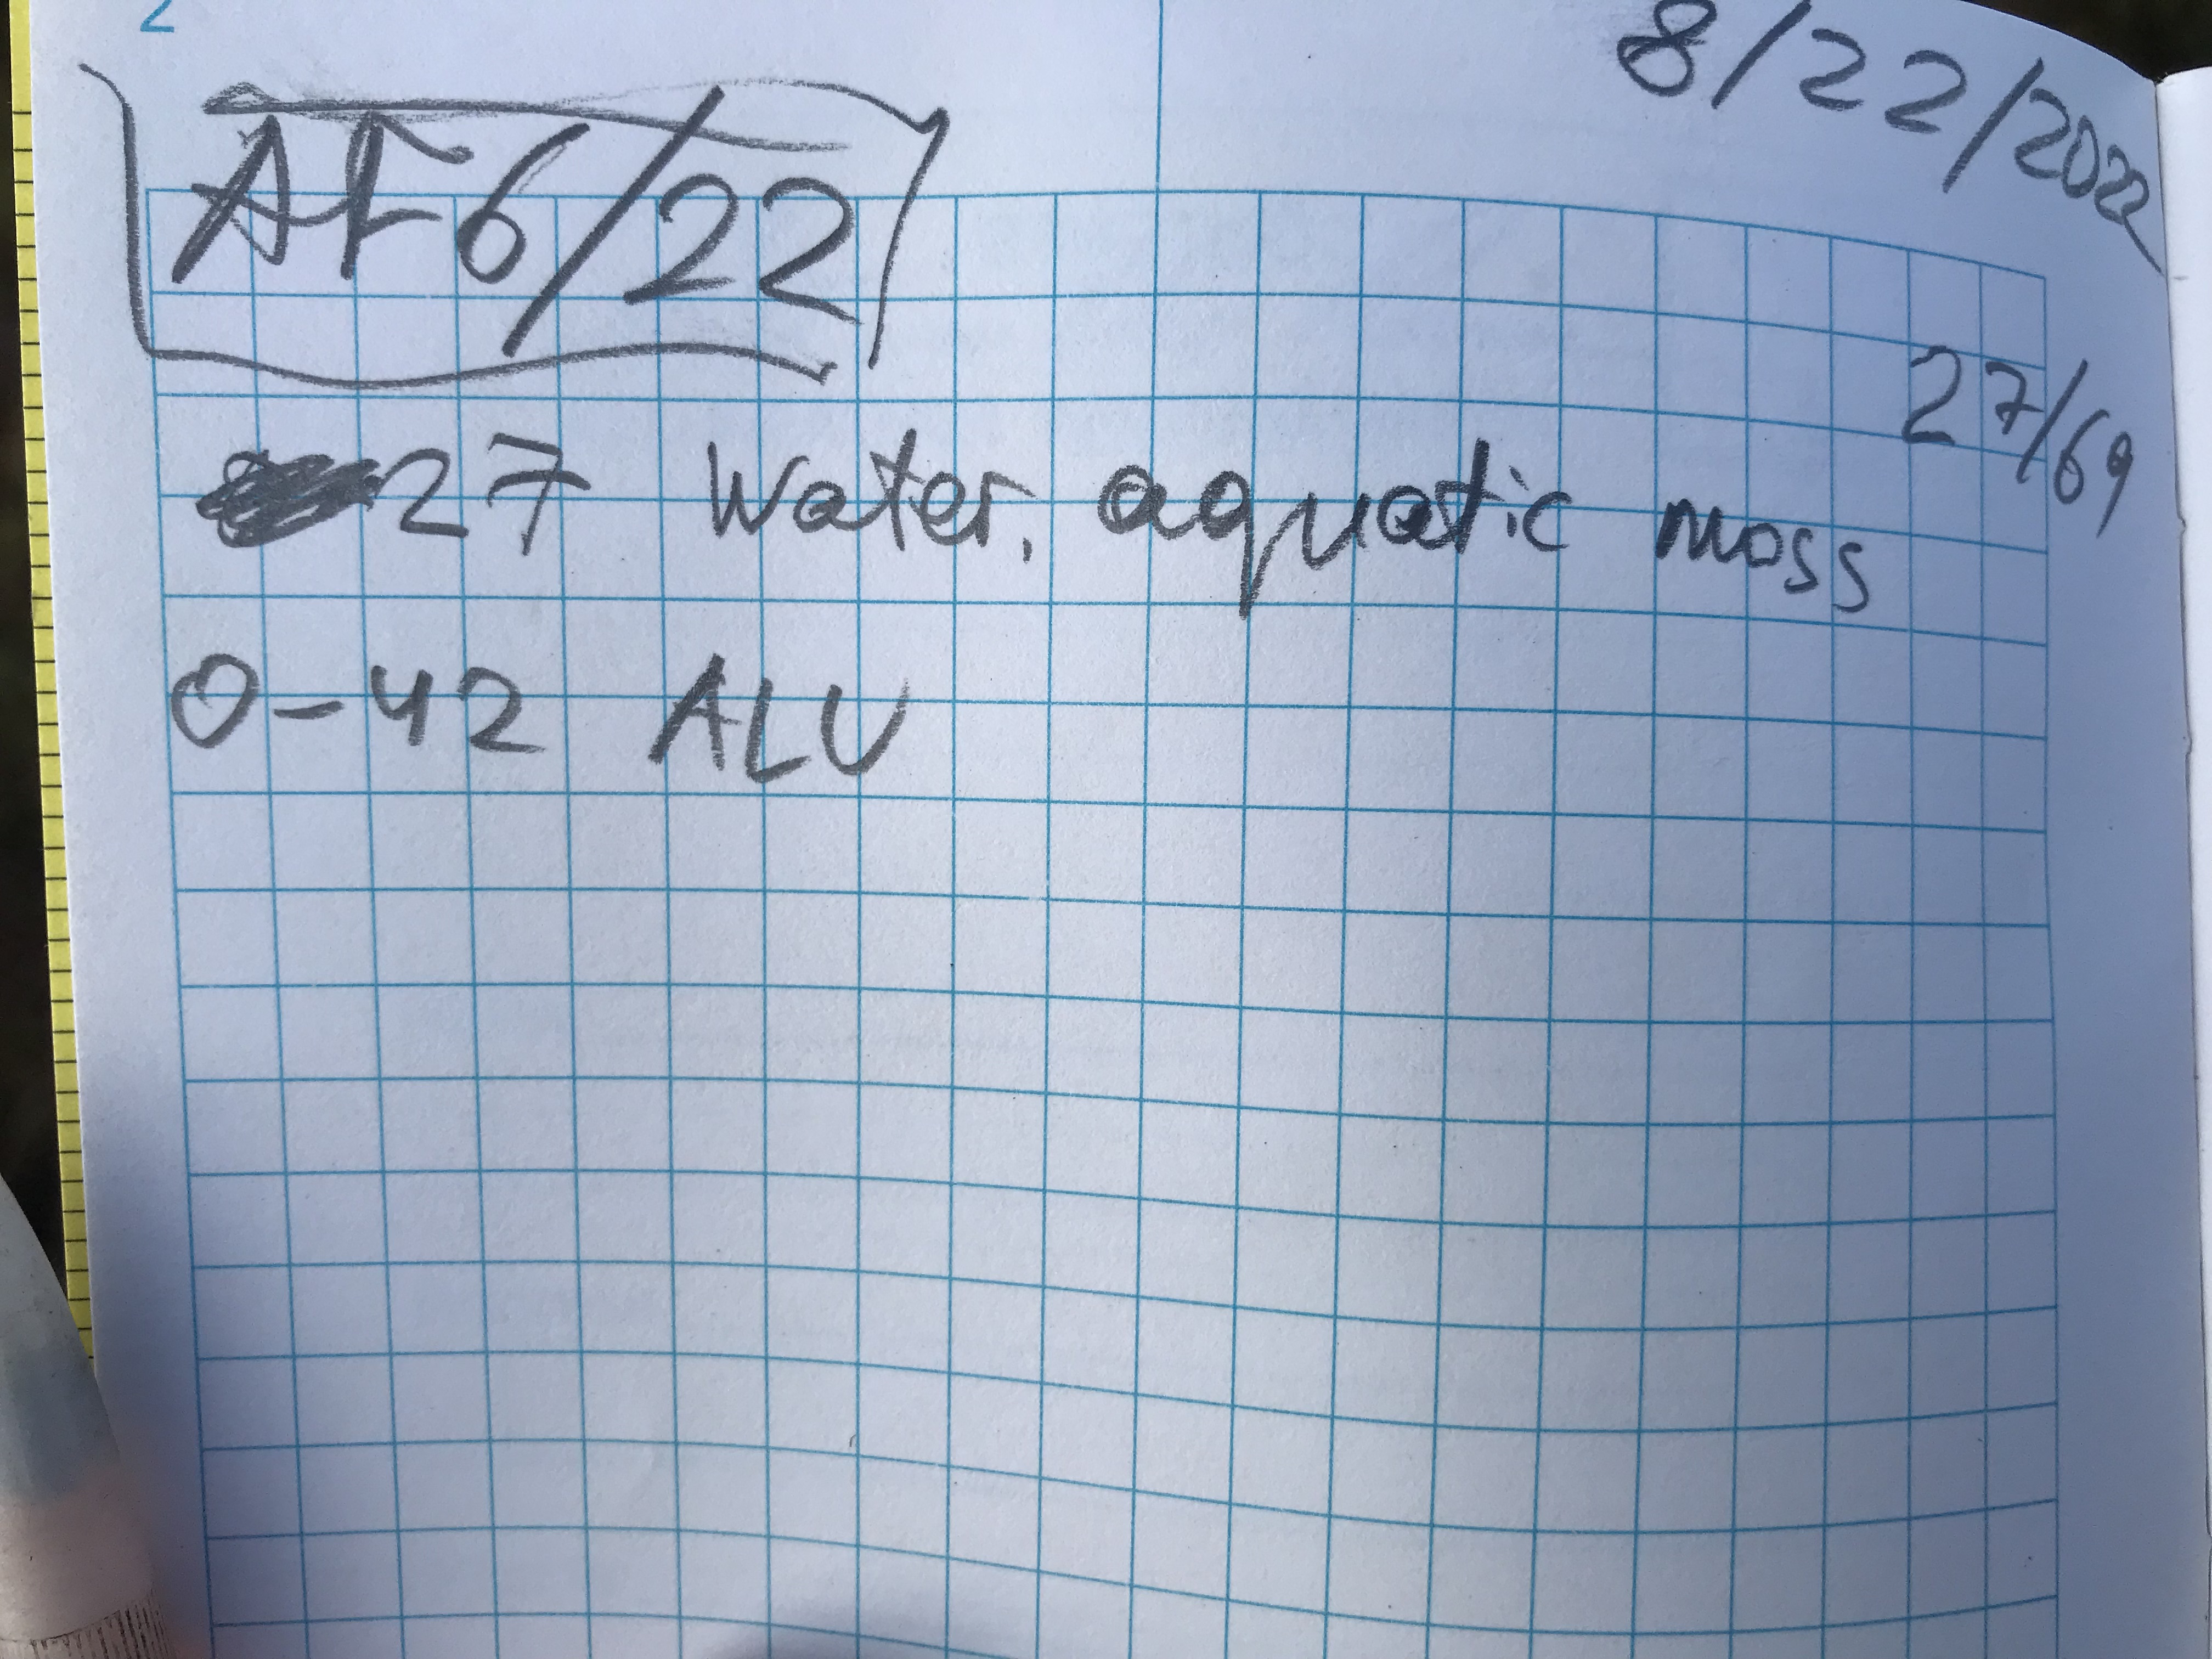 2
8/22/2022
AF6/22
27/69
27 Water, aquatic moss
0-42 ALU